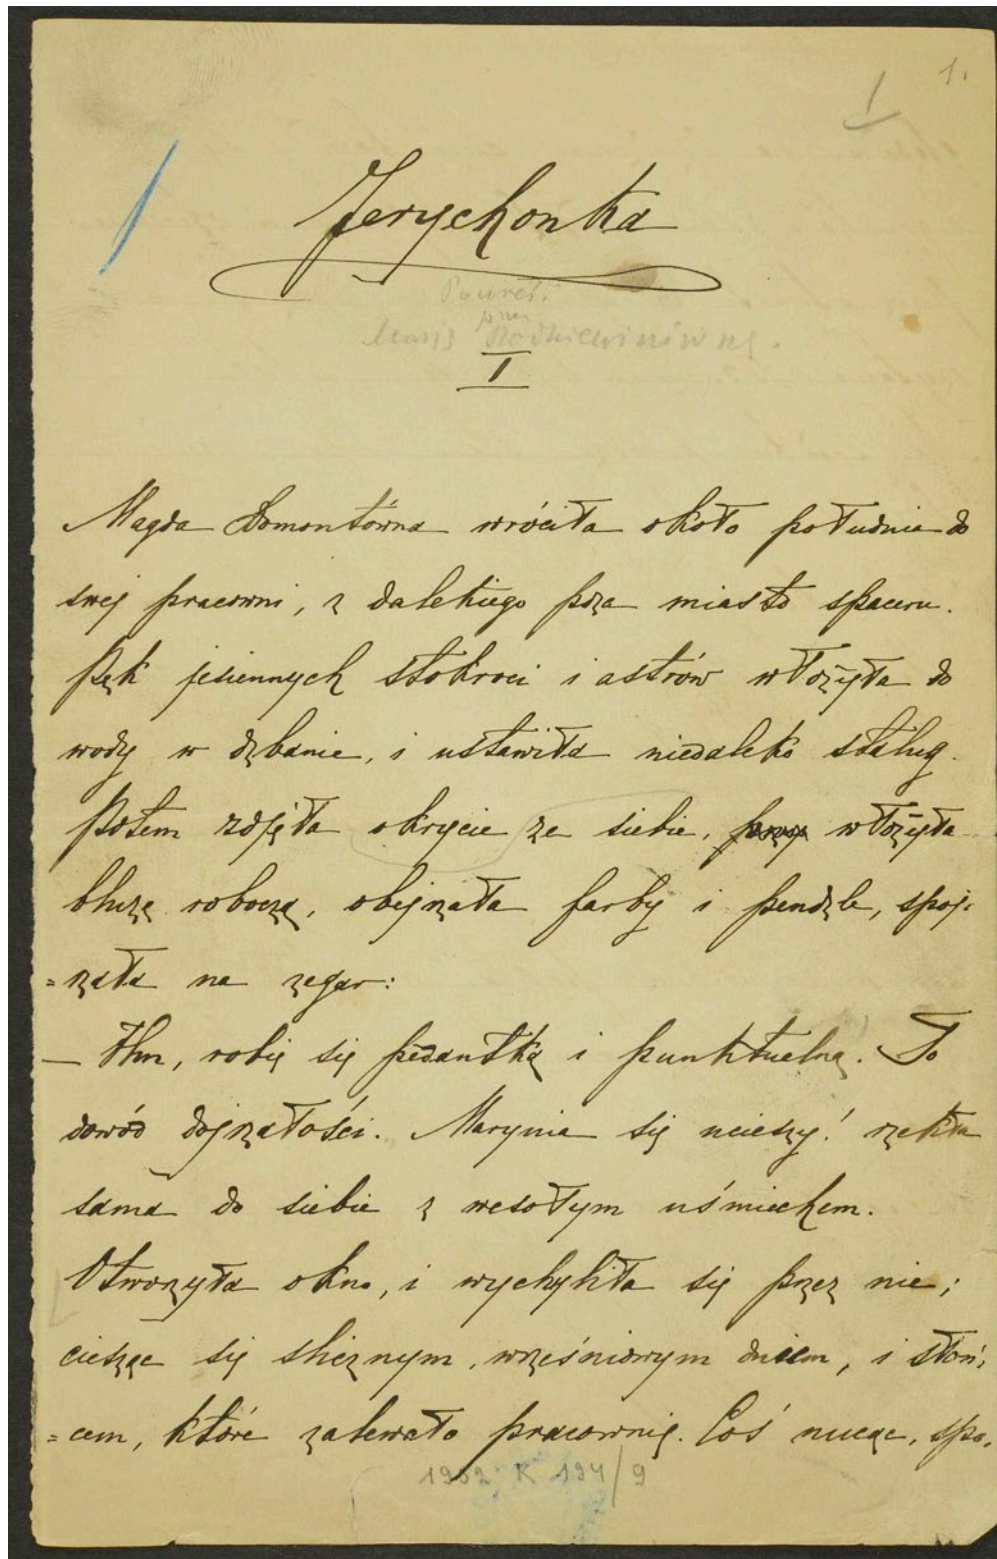 1.
1
Jerychonka
Powieść
przez
Maryę Rodziewiczównę.
I
Magda Domontówna wróciła około południa do
swej pracowni, z dalekiego poza miasto spaceru.
Pęk jesiennych stokroci i astrów włożyła do
wody w dzbanie, i ustawiła niedaleko stalug.
Potem zdjęła okrycie ze siebie, włożyła
bluzę roboczą, obejrzała farby i pendzle, spoj-
=rzała na zegar:
— Hm, robię się pedantką i punktualną! To
dowód dojrzałości. Marynia się ucieszy! rzekła
sama do siebie z wesołym uśmiechem.
Otworzyła okno, i wychyliła się przez nie;
ciesząc się ślicznym, wrześniowym dniem, i słoń-
=cem, które zalewało pracownię. Coś nucąc, spo-
1952 K 194/9